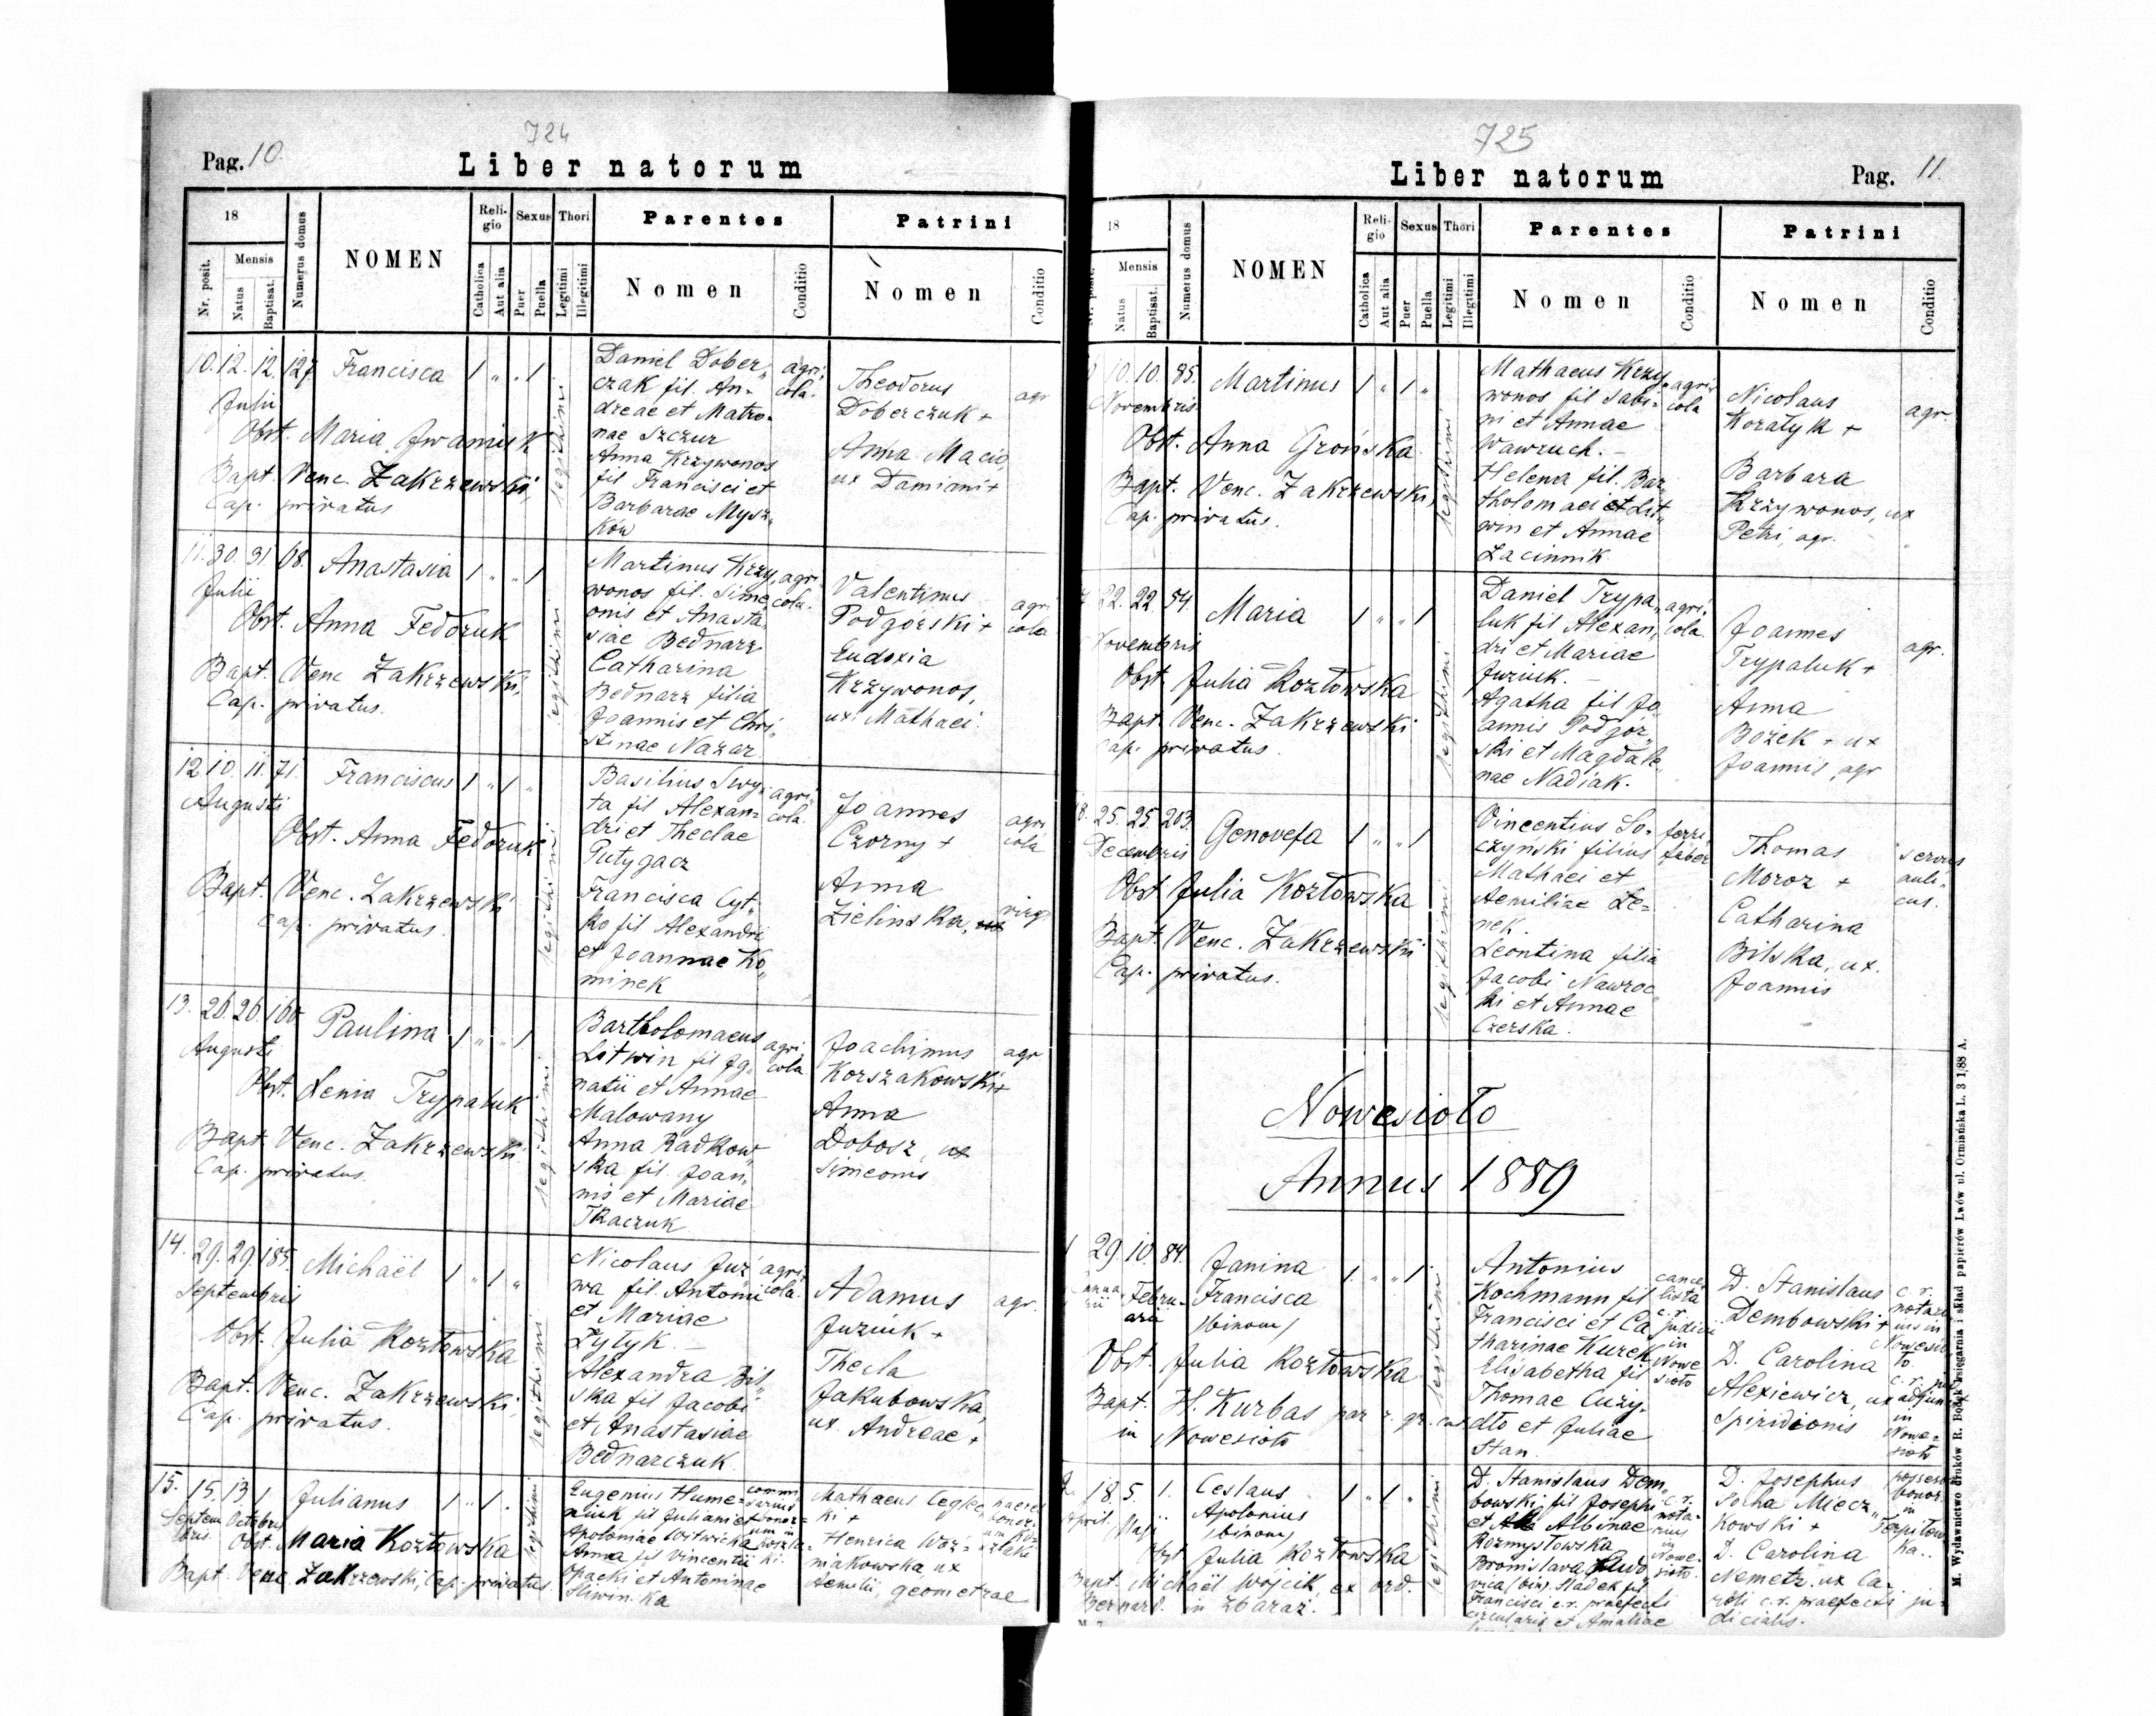 724
Pag. 10.
Liber natorum
18
Nr. posit.
Mensis
Natus
Baptisat.
Numerus domus
NOMEN
Religio
Catholica
Aut alia
Sexus
Puer
Puella
Thori
Legitimi
Illegitimi
Parentes
Nomen
Conditio
Patrini
Nomen
Conditio
10. 12. 12. 127. Francisca 1 " . 1
Julii
Obst. Maria
Bapt. Venc. Zakrzewski,
Cap. privatus
legitimi
Daniel Dober„
czak fil. An-
dreae et Matro-
nae Szczur
Anna Krzywonos
fil Francisci et
Barbarae Mysz„
ków
agri„
cola.
Theodorus
Doberczuk +
Anna Macio,
ux Damiani +
agr
11. 30. 31. 68. Anastasia 1 " " 1
Julii
Obst. Anna Fedoruk
Bapt. Venc Zakrzewski,
Cap. privatus.
legitimi
Martinus Krzy„
wonos fil. Sime„
onis et Anasta„
siae Bednarz
Catharina
Bednarz filia
Joannis et Chri„
stinae Nazar
agri
cola.
Valentinus
Podgórski +
Eudoxia
Krzywonos,
ux. Mathaei.
agri
cola
12. 10. 11. 71. Franciscus 1 " 1 "
Augusti
Obst. Anna Fedoruk
Bapt. Venc. Zakrzewski
Cap. privatus.
legitimi
Basilius Swy„
ta fil Alexan=
dri et Theclae
Putygacz
Francisca Cyt„
ko fil Alexandri
et Joannae Ko„
minek
agri„
cola.
Joannes
Czorny +
Anna
Zielinska,
virgo
agri
cola
13. 26. 26. 160. Paulina 1 " " 1
Augusti
Obst. Xenia Trypaluk
Bapt. Venc. Zakrzewski
Cap. privatus.
legitimi
Bartholomaeus
Litwin fil Ig„
natii et Annae
Malowany
Anna Radkow„
ska fil. Joan„
nis et Mariae
Tkaczuk
agri„
cola
Joachimus
Korszakowski +
Anna
Dobosz, ux
Simeonis
agr.
14. 29. 29. 185. Michaël 1 " 1 "
Septembris
Obst. Julia Kozłowska
Bapt. Venc. Zakrzewski,
Cap. privatus.
legitimi
Nicolaus Juź„
wa fil. Antonii
et Mariae
Żytyk. —
Alexandra Bil„
ska fil Jacobi
et Anastasiae
Bednarczuk
agri„
cola.
Adamus
Juziuk +
Thecla
Jakubowska,
ux. Andreae +
agr.
15. 15. 13. 1 Julianus 1 " 1 .
Septem Octobris
bris
Obst. Maria Kozłowska
Bapt. Venc. Zakrzewski, Cap. privatus.
legitimi
Eugenius Hume=
niuk fil Juliani et
Apoloniae Witwicka
Anna fil Vincentii
Opacki et Antoninae
Sliwinska
Mathaeus
Henrica Woź=
niakowska, ux
Aemilii, geometrae
725
Liber natorum
Pag. 11.
18
Nr. posit.
Mensis
Natus
Baptisat.
Numerus domus
NOMEN
Religio
Catholica
Aut alia
Sexus
Puer
Puella
Thori
Legitimi
Illegitimi
Parentes
Nomen
Conditio
Patrini
Nomen
Conditio
10. 10. 85. Martinus 1 " 1 "
Novembris
Obst. Anna Grońska
Bapt. Venc. Zakrzewski,
Cap. privatus.
legitimi
Mathaeus Krzy„
wonos fil Sabi=
ni et Annae
Wawruch. —
Helena fil. Bar„
tholomaei et Lit„
win et Annae
Zacinnik
agri„
cola
Nicolaus
Koratyk +
Barbara
Krzywonos, ux
Petri, agr.
agr.
22. 22. 54. Maria 1 " " 1
Novembris
Obst. Julia Kozłowska
Bapt. Venc. Zakrzewski
Cap. privatus.
legitimi
Daniel Trypa„
luk fil Alexan„
dri et Mariae
Juziuk. —
Agatha fil Jo„
annis Podgór„
ski et Magdale„
nae Nadiak.
agri„
cola.
Joannes
Trypaluk +
Anna
Bożek + ux
Joannis, agr
agr.
18. 25. 25. 203. Genovefa 1 " " 1
Decembris
Obst Julia Kozłowska
Bapt. Venc. Zakrzewski
Cap. privatus.
legitimi
Vincentius So=
czynski filius
Mathaei et
Aemiliae Le=
nek.
Leontina filia
Jacobi Nawroc„
ki et Annae
Czerska.
ferri
faber
Thomas
Moroz +
Catharina
Bilska, ux.
Joannis
servus
auli„
cus.
Nowesioło
Annus 1889
29. 10. 84. Janina 1 " " 1
Janua
rii
Febru-
arii
Francisca
/binom/
Obst. Julia Kozłowska
Bapt. H. Kurbas par r. gr. cat
in Nowesioło
legitimi
Antonius
Kochmann fil
Francisci et Ca
tharinae Kurek
Elisabetha fil
Thomae Cuży„
dło et Juliae
Stan.
cance
lista
c. r.
judicii
in
Nowe
sioło
D. Stanislaus
Dembowski +
D. Carolina
Alexiewicz, ux
Spiridionis
c. r.
notari
us in
Nowesio
ło.
adjun
in
Nowe=
sioło
2. 18. 5. 1. Ceslaus 1 " 1 "
April. Maji
Apolonius
/binom/
Obst Julia Kozłowska
Bapt. Michaël Wójcik, ex ord.
Bernard. in Zbaraż.
legitimi
D. Stanislaus Dem„
bowski, fil Josephi
et Albinae
Rozmysłowska
Bronislava Ludo
vica (bin). Sladek fil
Francisci c.r. praefecti
circularis et Amaliae
c. r.
nota=
rius
in
Nowe-
sioło.
D. Josephus
Socha Miecz„
kowski +
D. Carolina
Nemetz. ux Ca-
roli c.r. praefecti ju-
dicialis.
possessor
bonor.
in
Terpiłow
ka..
M. Wydawnictwo druków R. Bodek księgarnia i skład papierów Lwów ul. Ormiańska L. 3 1/88 A.